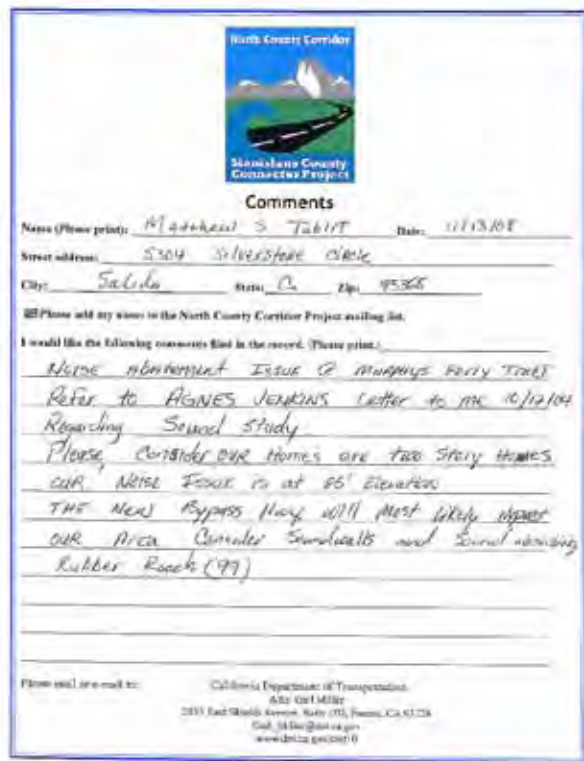 North County Corridor
Stanislaus County
Connector Project
Comments
Name (Please print): Matthew S Date: 11/13/08
Street address: 5304 Silverstone Circle
City: Salida State: Ca Zip: 95368
Please add my name to the North County Corridor Project mailing list.
I would like the following comments filed in the record. (Please print.)
Noise Abatement Issue @ Murphys Ferry Tract
Refer to AGNES JENKINS Letter to me 10/12/04
Regarding Sound Study
Please, Consider our Homes are two Story Homes
our Noise Issue is at Elevation
THE New Bypass Hwy will Most likely impact
our Area Consider Soundwalls and Sound absorbing
Rubber (99)
Please mail or e-mail to:
California Department of Transportation
Attn: Gail Miller
www.dot.ca.gov